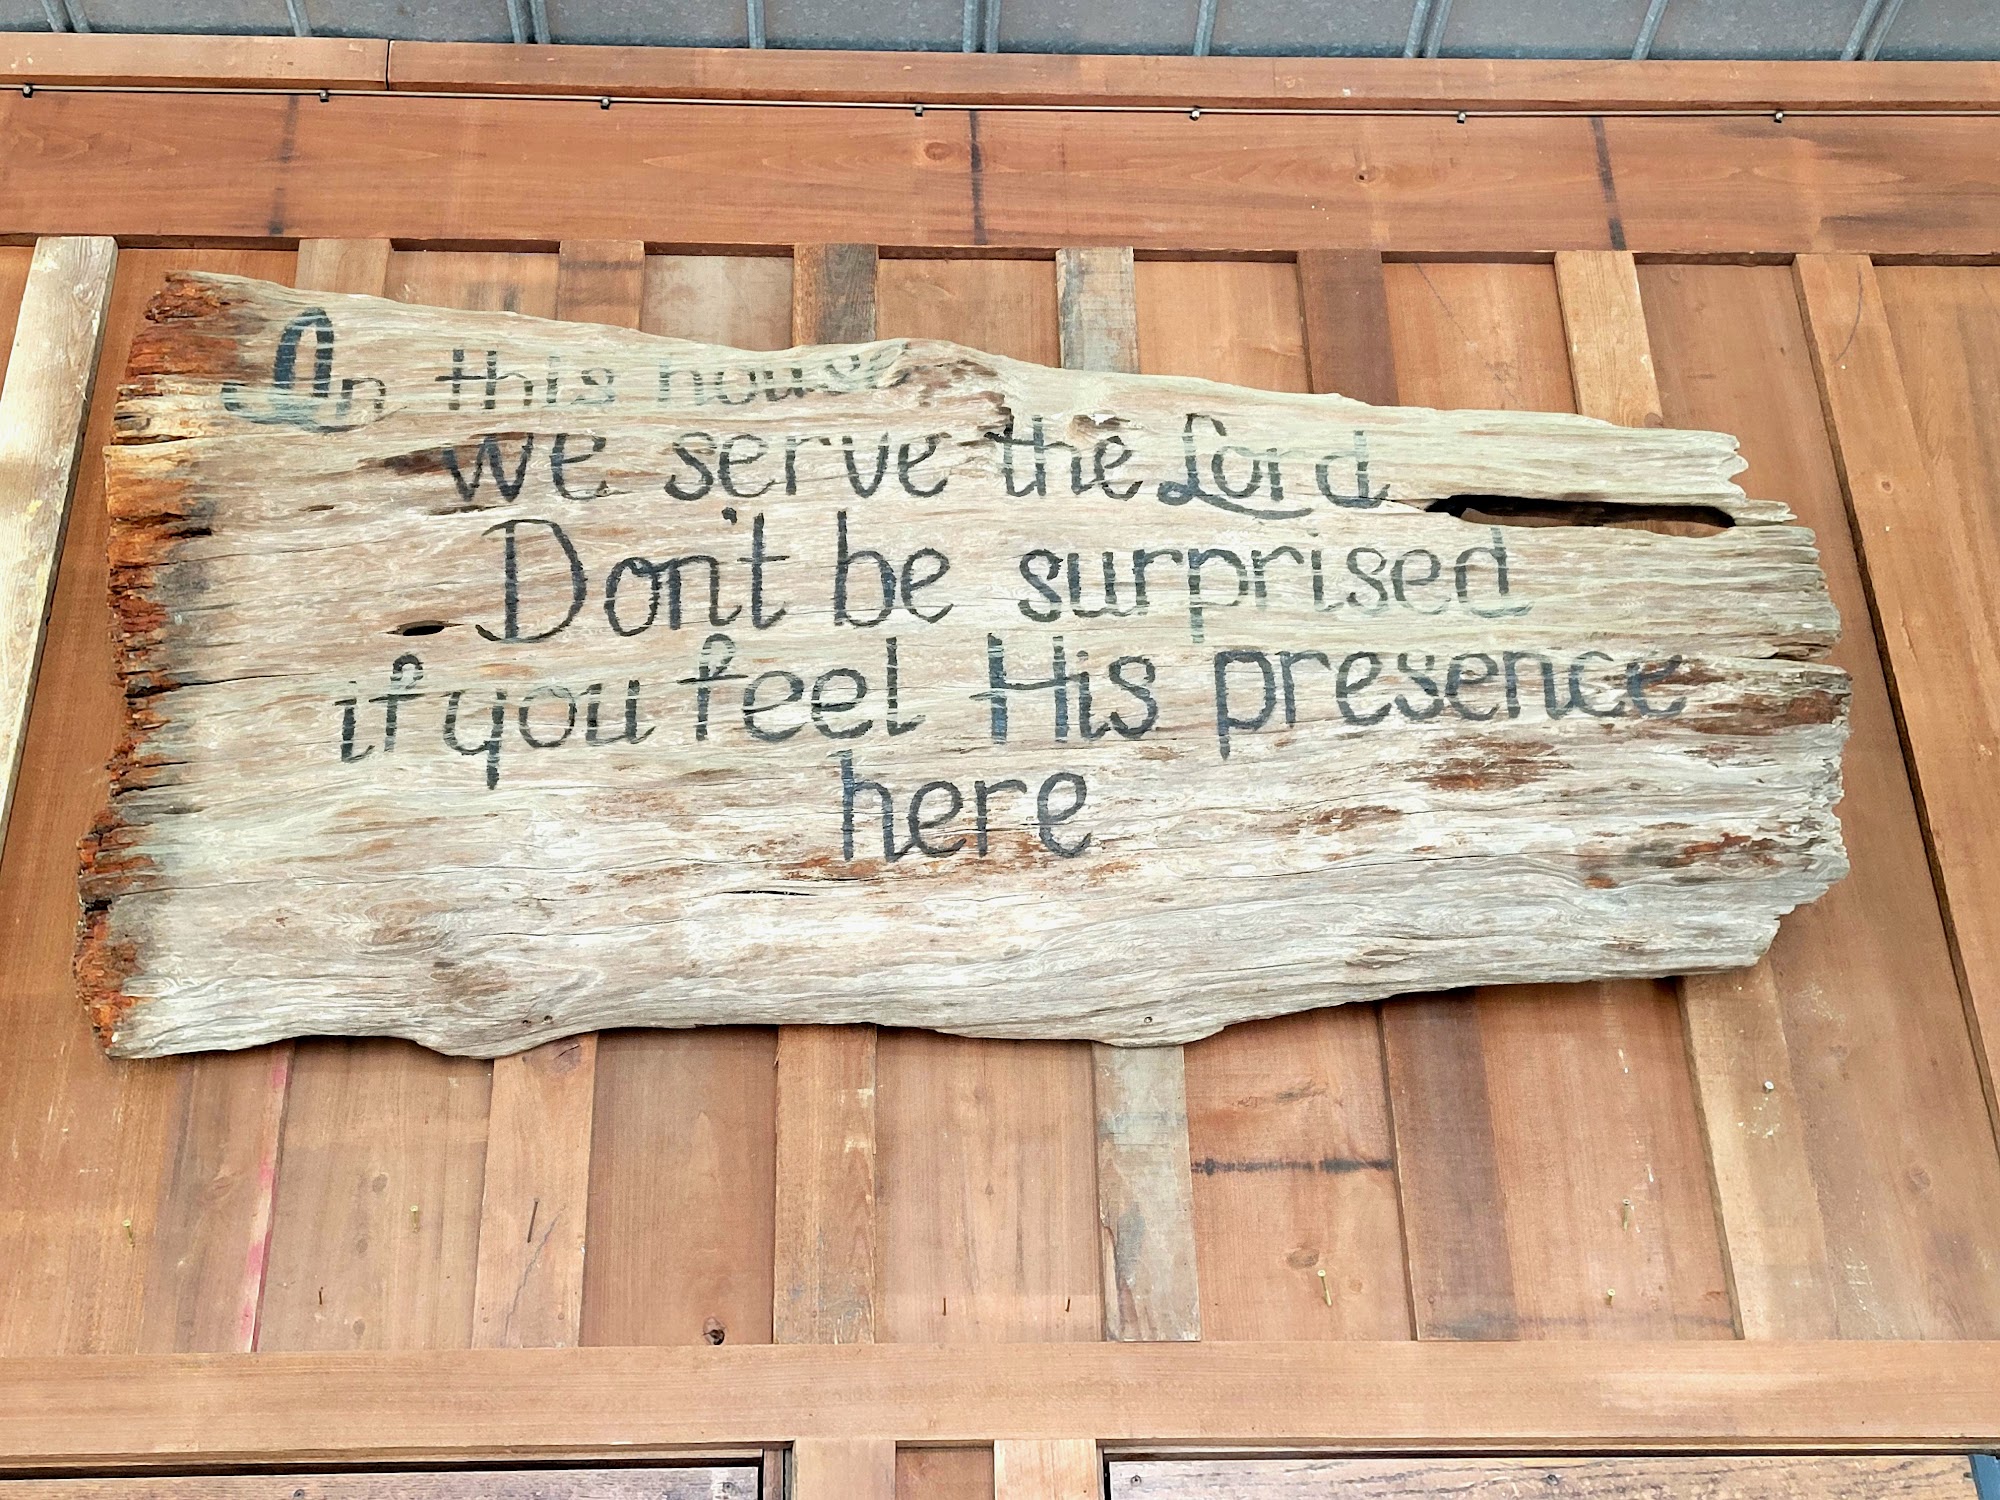 In this house
we serve the Lord
Don't be surprised
if you feel His presence
here